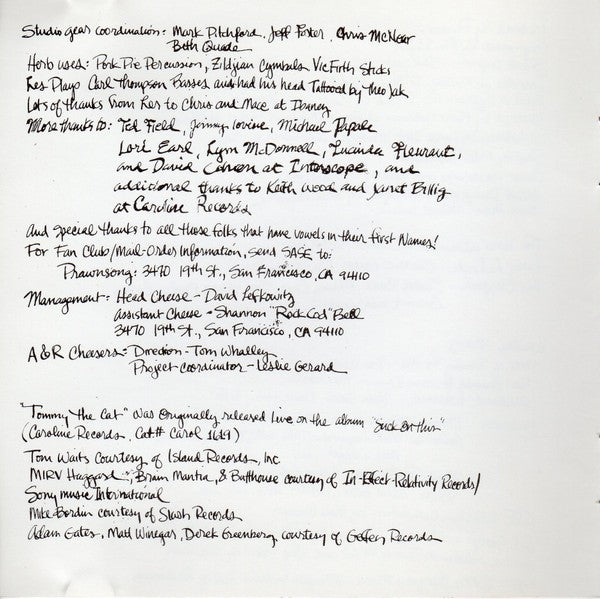 Studio gear coordination: Mark Pitchford, Jeff Porter, Chris McNear
Beth Quade
Herb uses: Pork Pie Percussion, Zildjian Cymbals Vic Firth Sticks
Les Plays Carl Thompson Basses and had his head Tattooed by Theo Jak
Lots of thanks from Ler to Chris and Mace at
More thanks to: Ted Field, Jimmy Iovine, Michael Papale
Lori Earl, Kym McDonnell, Lucinda Fleurant,
and David Cohen at Interscope, and
additional thanks to Keith Wood and Janet Billig
at Caroline Records
And special thanks to all those folks that have vowels in their first Names!
For Fan Club/Mail-Order Information, Send SASE to:
Prawnsong: 3470 19th St., San Francisco, CA 94110
Management: Head Cheese - David Lefkowitz
Assistant Cheese - Shannon "Rock Cod" Bell
3470 19th St., San Francisco, CA 94110
A&R Cheesers: Direction - Tom Whalley
Project coordinator - Leslie Gerard
"Tommy the Cat" was originally released Live on the album "Suck on This"
(Caroline Records, Cat.# Carol 1619)
Tom Waits Courtesy of Island Records, Inc.
MIRV Haggard, Brain Mantia, & Butthouse courtesy of In-Effect-Relativity Records/
Sony music International
Mike Bordin courtesy of Slash Records
Adam Gates, Matt Winegar, Derek Greenberg, courtesy of Geffen Records